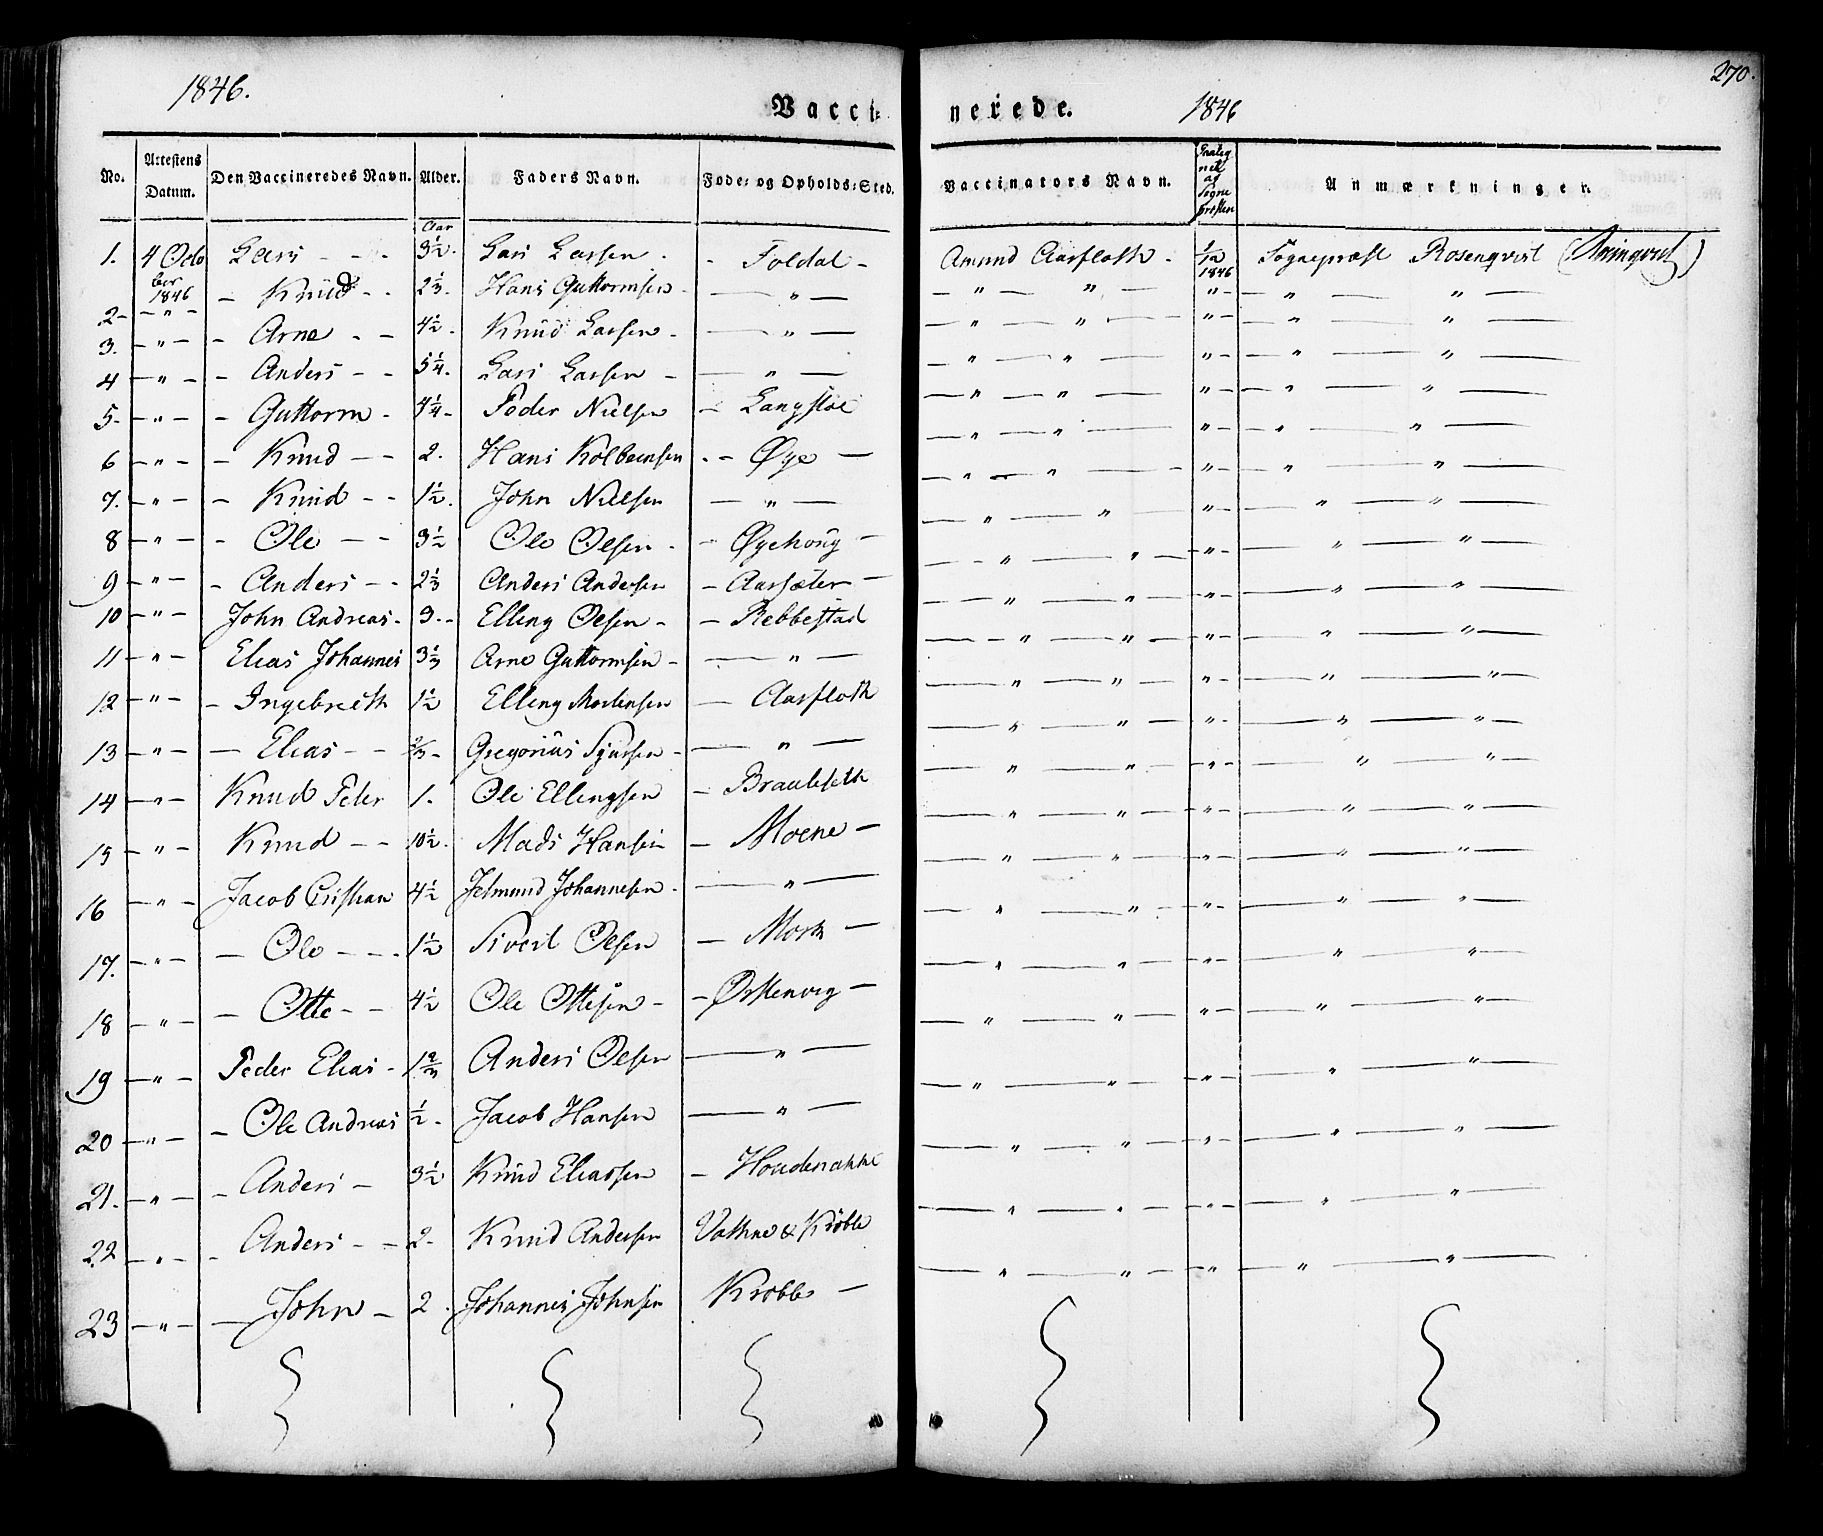 270.
1846.
Vacci= nerede. 1846
No. | Attestens Datum. | Den Vaccineredes Navn. | Alder. | Faders Navn. | Føde= og Opholds=Sted. | Vaccinators Navn. | af Sogne Præsten | Anmærkninger.
Aar
1. | 4 October 1846 | Lars - - - | 3 1/2. | Lars Larsen - | - Foldal - | Amund Aarfloth - | 1/12 1846 | Sognepræst Rosenqvist
2 - | - " - | - Knud - - | 2 1/3. | Hans Guttormsen - | — " — | — " — " — | " - | — " — " —
3. | - " - | - Arne - - | 4 1/2. | Knud Larsen - | — " — | — " — " — | " - | — " — " —
4 | - " - | - Anders - - | 5 1/4. | Lars Larsen - | — " — | — " — " — | " - | — " — " —
5 - | - " - | - Guttorm - | 4 1/4 - | Peder Nielsen | - Langstøl | — " — " — | " - | — " — " —
6 | - " - | - Knud - - | 2. | Hans Kolbeensen | - - Øye - | — " — " — | " - | — " — " —
7. | - " - | - Knud - - | 1 1/2. | John Nielsen | — " — | — " — " — | " - | — " — " —
8 | - " - | - Ole - - | 3 1/2 | Ole Olsen - | - Øyehoug - | — " — " — | " - | — " — " —
9 | - " - | - Anders - - | 2 1/3 | Anders Andersen | - Aarsæter - | — " — " — | " - | — " — " —
10 | - " - | John Andreas - | 3. - | Elling Olsen - | - Rebbestad | — " — " — | " - | — " — " —
11 | - " - | Elias Johannes | 3 1/3 | Arne Guttormsen - | — " — | — " — " — | " - | — " — " —
12 | - " - | - Ingebreth | 1 1/2 | Elling Mortensen | - Aarfloth | — " — " — | " - | — " — " —
13 | - " - | - Elias - - | 2/3 - | Gregorius Sjursen - | — " — | — " — " — | " - | — " — " —
14 | - " - | Knud Peder | 1. | Ole Ellingsen | - Brauteseth | — " — " — | " - | — " — " —
15 | - " - | Knud - - | 10 1/2. | Mads Hansen | - Moene - | — " — " — | " - | — " — " —
16 | - " - | Jacob Cristian | 4 1/2 | Jetmund Johannesen - | — " — | — " — " — | " - | — " — " —
17. | - " - | - Ole - - - | 1 1/2 | Sivert Olsen | - Mork - | — " — " — | " - | — " — " —
18 | - " - | - Otte - - | 4 1/2 | Ole Ottesen - | - Østenvig - | — " — " — | " - | — " — " —
19 | - " - | Peder Elias - | 1 2/3 | Anders Olsen | — " — | — " — " — | " - | — " — " —
20 | - " - | - Ole Andreas | 1/2 - | Jacob Hansen | — " — | — " — " — | " - | — " — " —
21. | - " - | - Anders - | 3 1/2 | Knud Eliassen | - Houdenakke | — " — " — | " - | — " — " —
22 | - " - | - Anders - - | 2 - | Knud Andersen | Vathne & Krøble | — " — " — | " - | — " — " —
23 | - " - | - John - | 2. | Johannes Johnsen | Krobbe - | — " — " — | " - | — " — " —